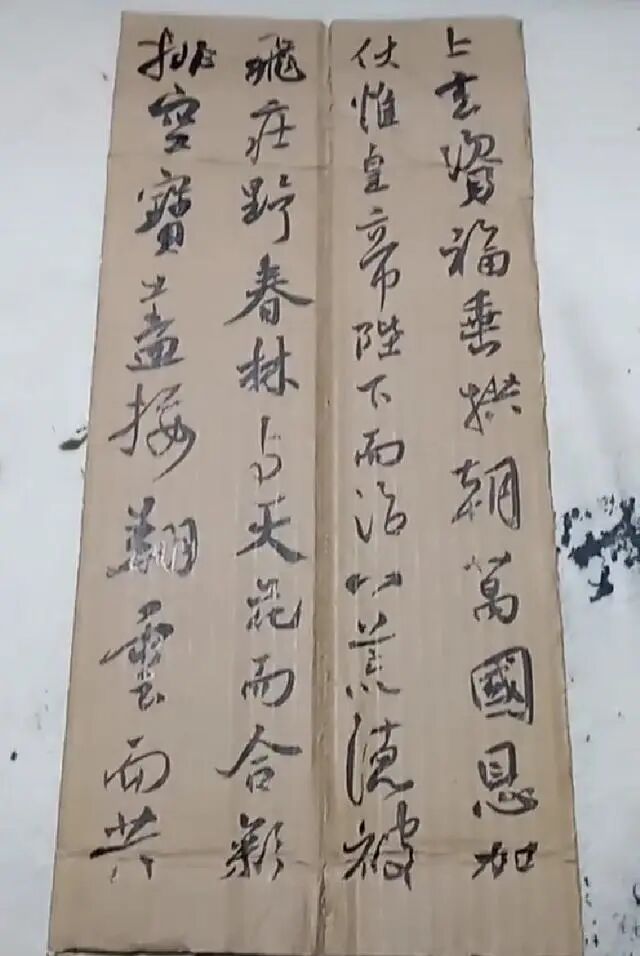 排空寶蓋接翔雲而共
飛莊野春林与天花而合彩
伏惟皇帝陛下而治八荒德被
上玄資福垂拱朝萬國恩加